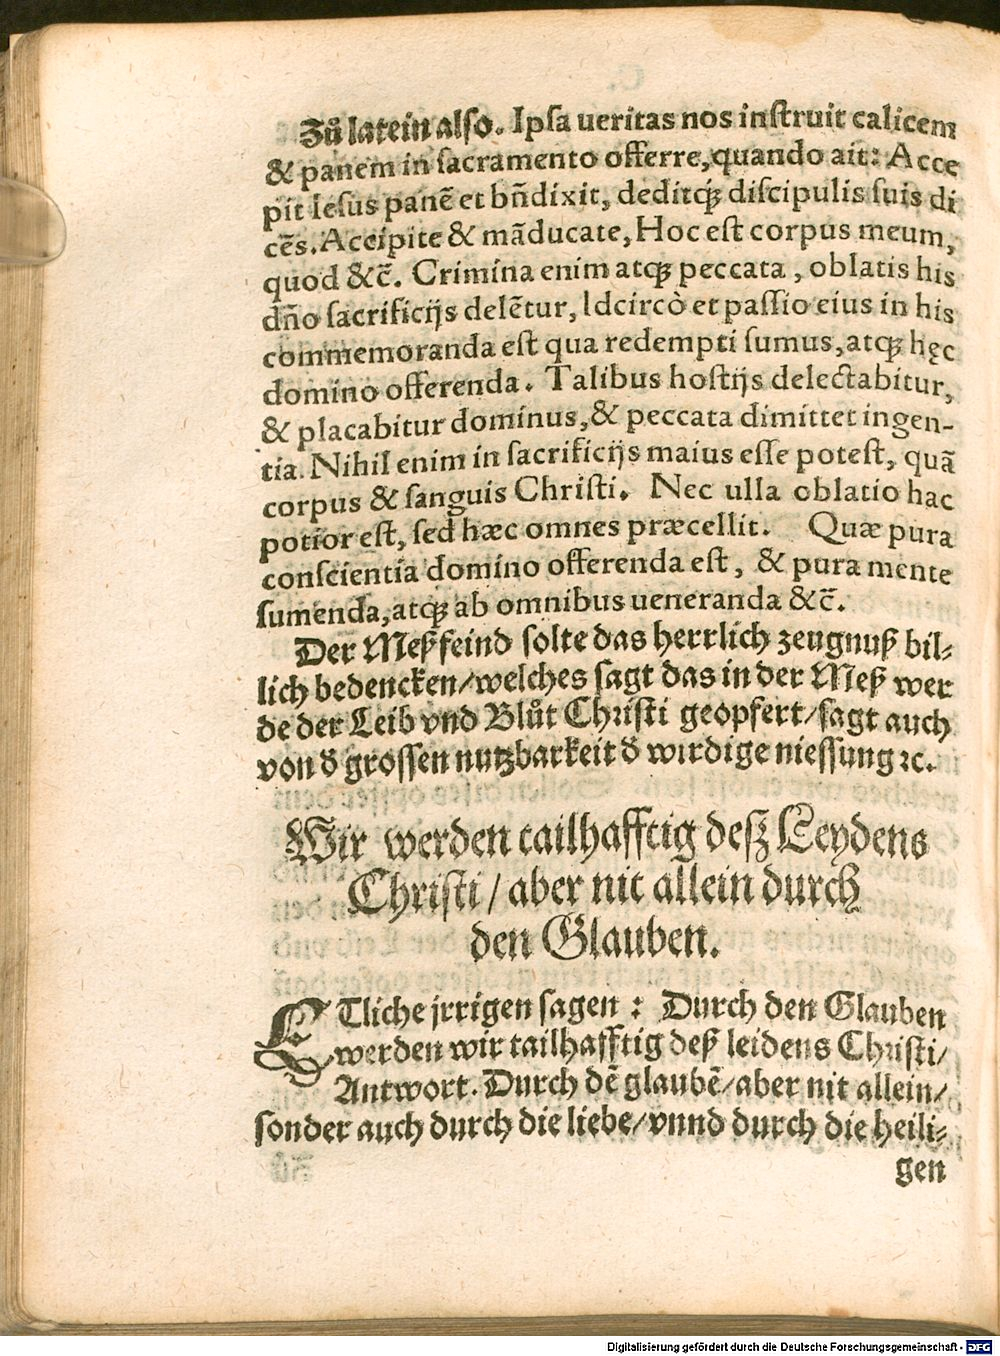 Zů latein also. Ipsa ueritas nos instruit calicem
& panem in sacramento offerre, quando ait: Acce
pit Iesus panē et bn̄dixit, deditqꝫ discipulis suis di
cēs. Accipite & māducate, Hoc est corpus meum,
quod &c̄. Crimina enim atqꝫ peccata, oblatis his
dn̄o sacrificijs delētur, Idcircò et passio eius in his
commemoranda est qua redempti sumus, atqꝫ hęc
domino offerenda. Talibus hostijs delectabitur,
& placabitur dominus, & peccata dimittet ingen-
tia. Nihil enim in sacrificijs maius esse potest, quā
corpus & sanguis Christi. Nec ulla oblatio hac
potior est, sed hæc omnes præcellit. Quæ pura
conscientia domino offerenda est, & pura mente
sumenda, atqꝫ ab omnibus ueneranda &c̄.
Der Meßfeind solte das herrlich zeugnuß bil-
lich bedencken/welches sagt das in der Meß wer
de der Leib vnd Blůt Christi geopfert/sagt auch
von d̕ grossen nutzbarkeit d̕ wirdige niessung ꝛc.
Wir werden tailhafftig desz Leydens
Christi/ aber nit allein durch
den Glauben.
ETliche jrrigen sagen: Durch den Glauben
werden wir tailhafftig deß leidens Christi/
Antwort. Durch dē glaubē/aber nit allein/
sonder auch durch die liebe/vnnd durch die heili-
gen
Digitalisierung gefördert durch die Deutsche Forschungsgemeinschaft - DFG